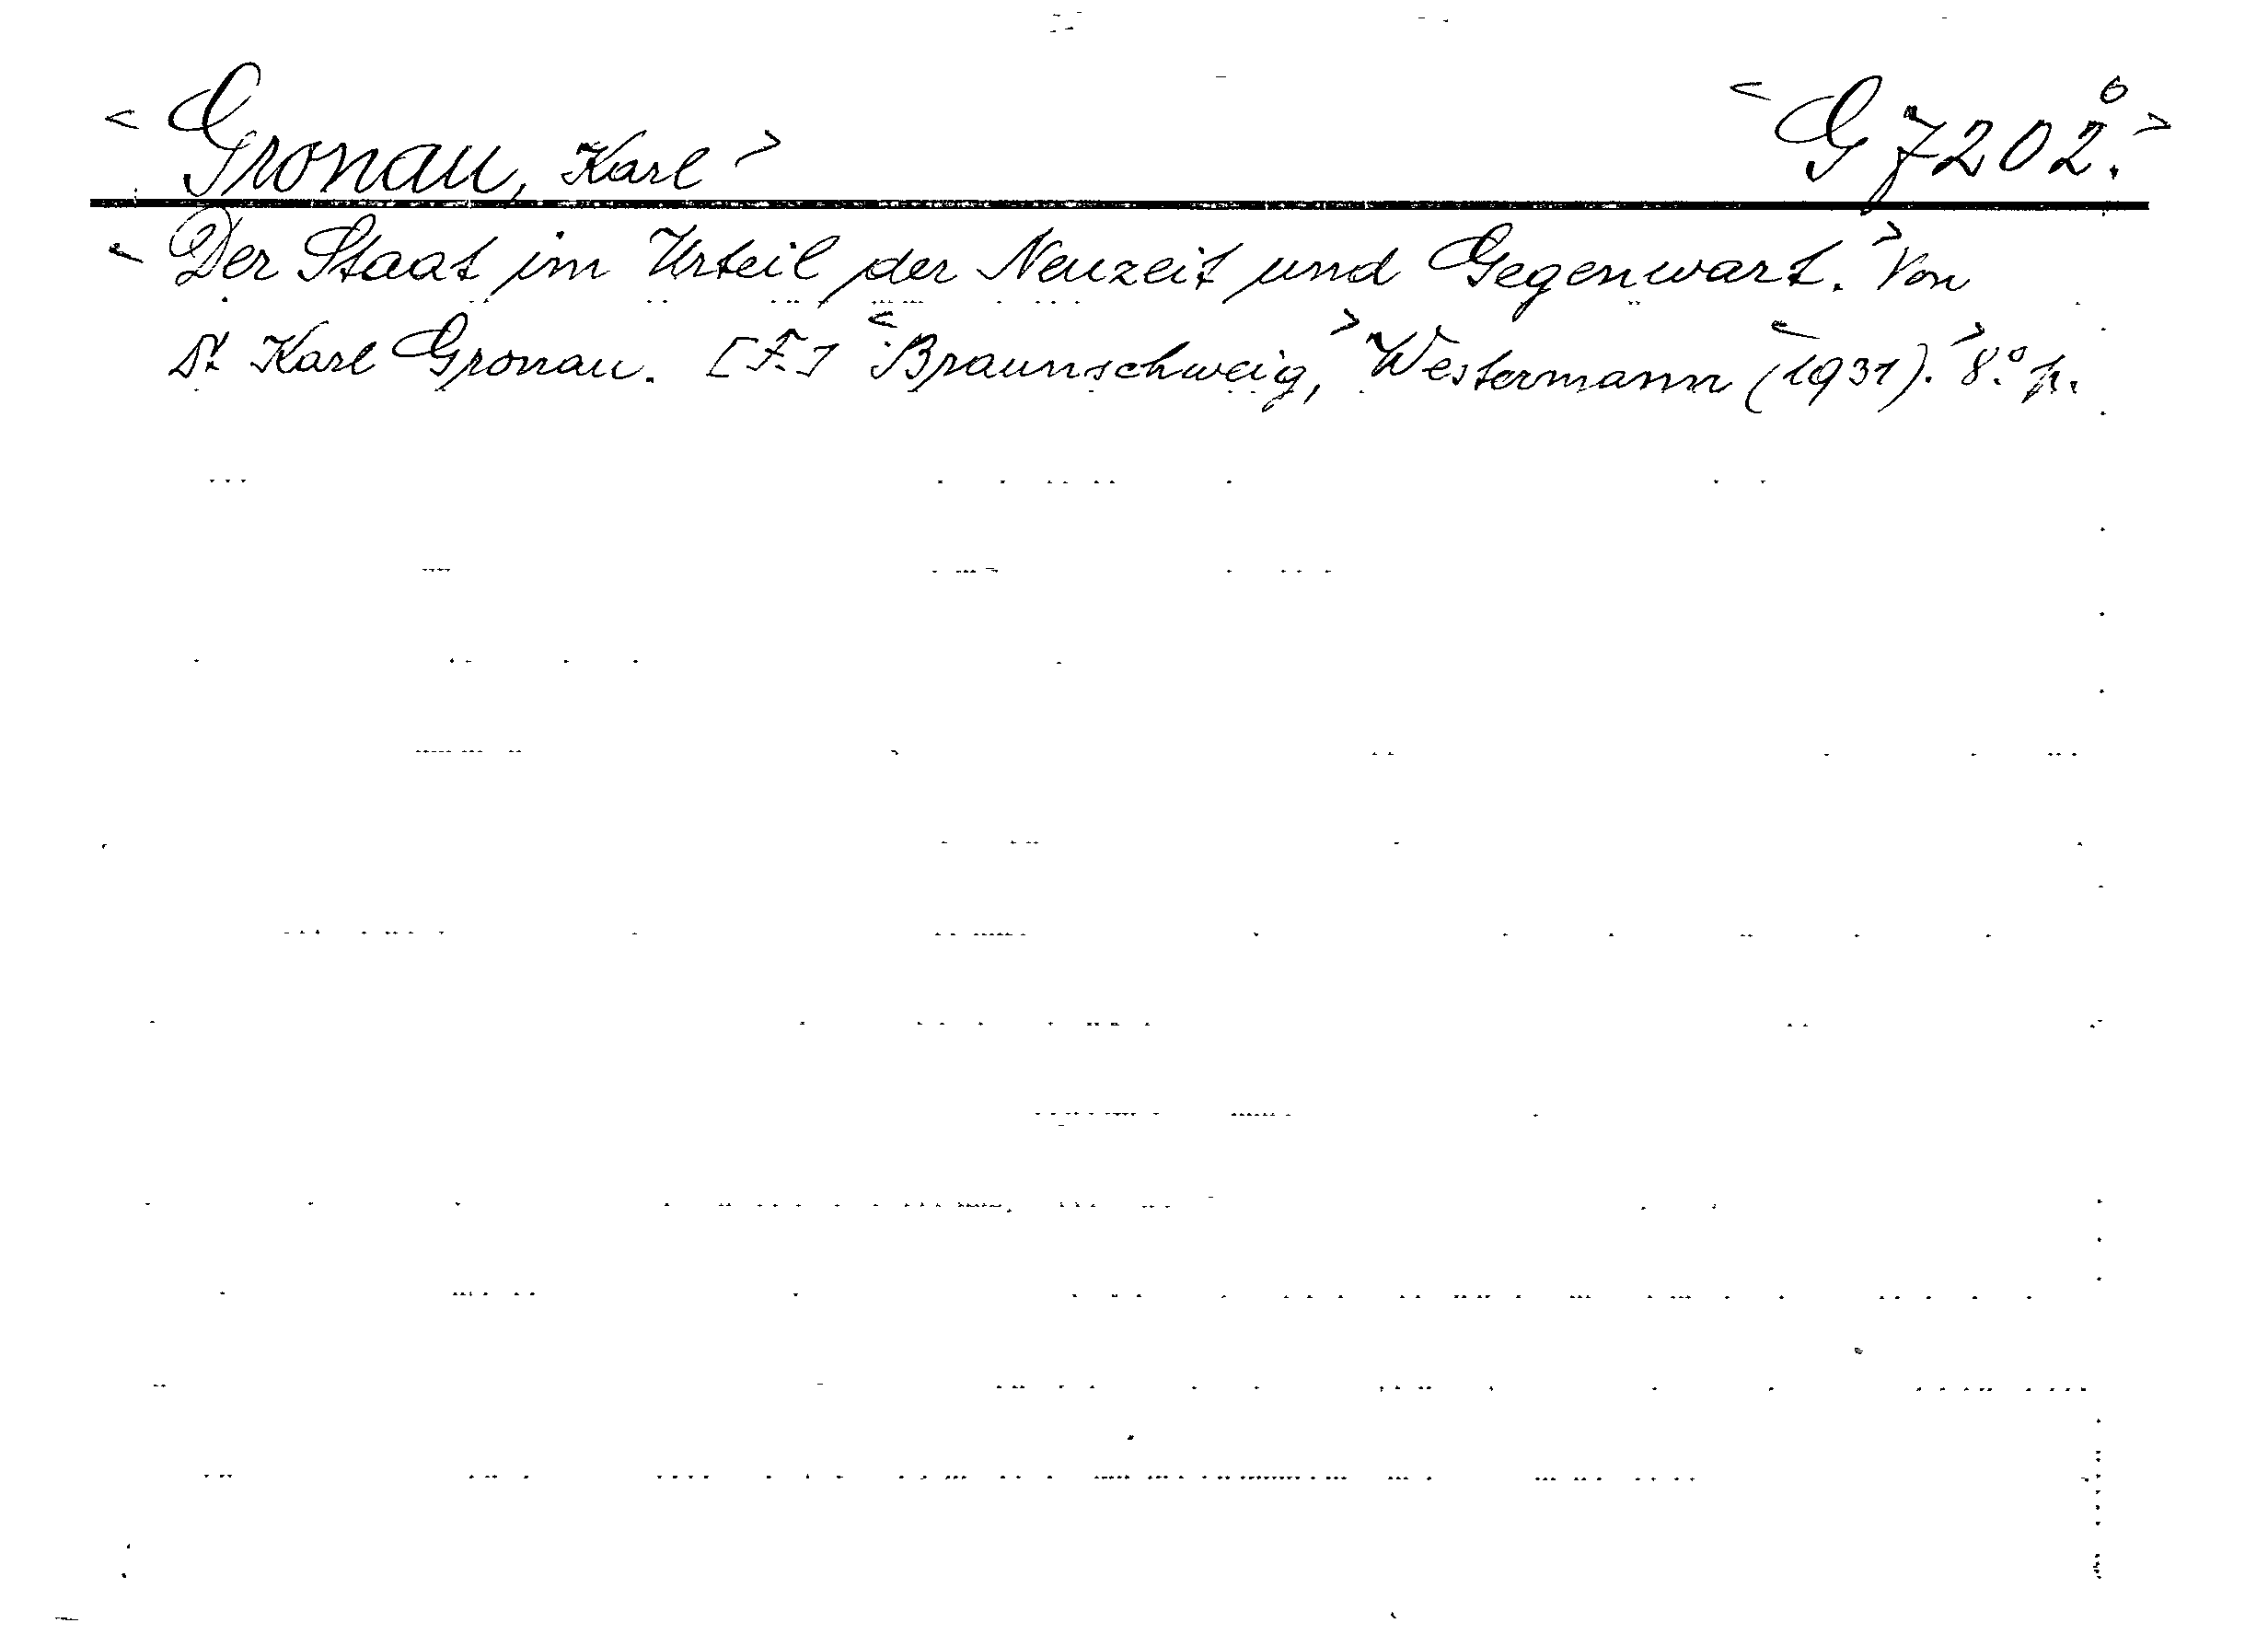 < Gronau, Karl > < G 7202.° >
< Der Staat im Urteil der Neuzeit und Gegenwart. > Von
Dr. Karl Gronau. [F.] < Braunschweig, > Westermann < (1931). > 8.° p.